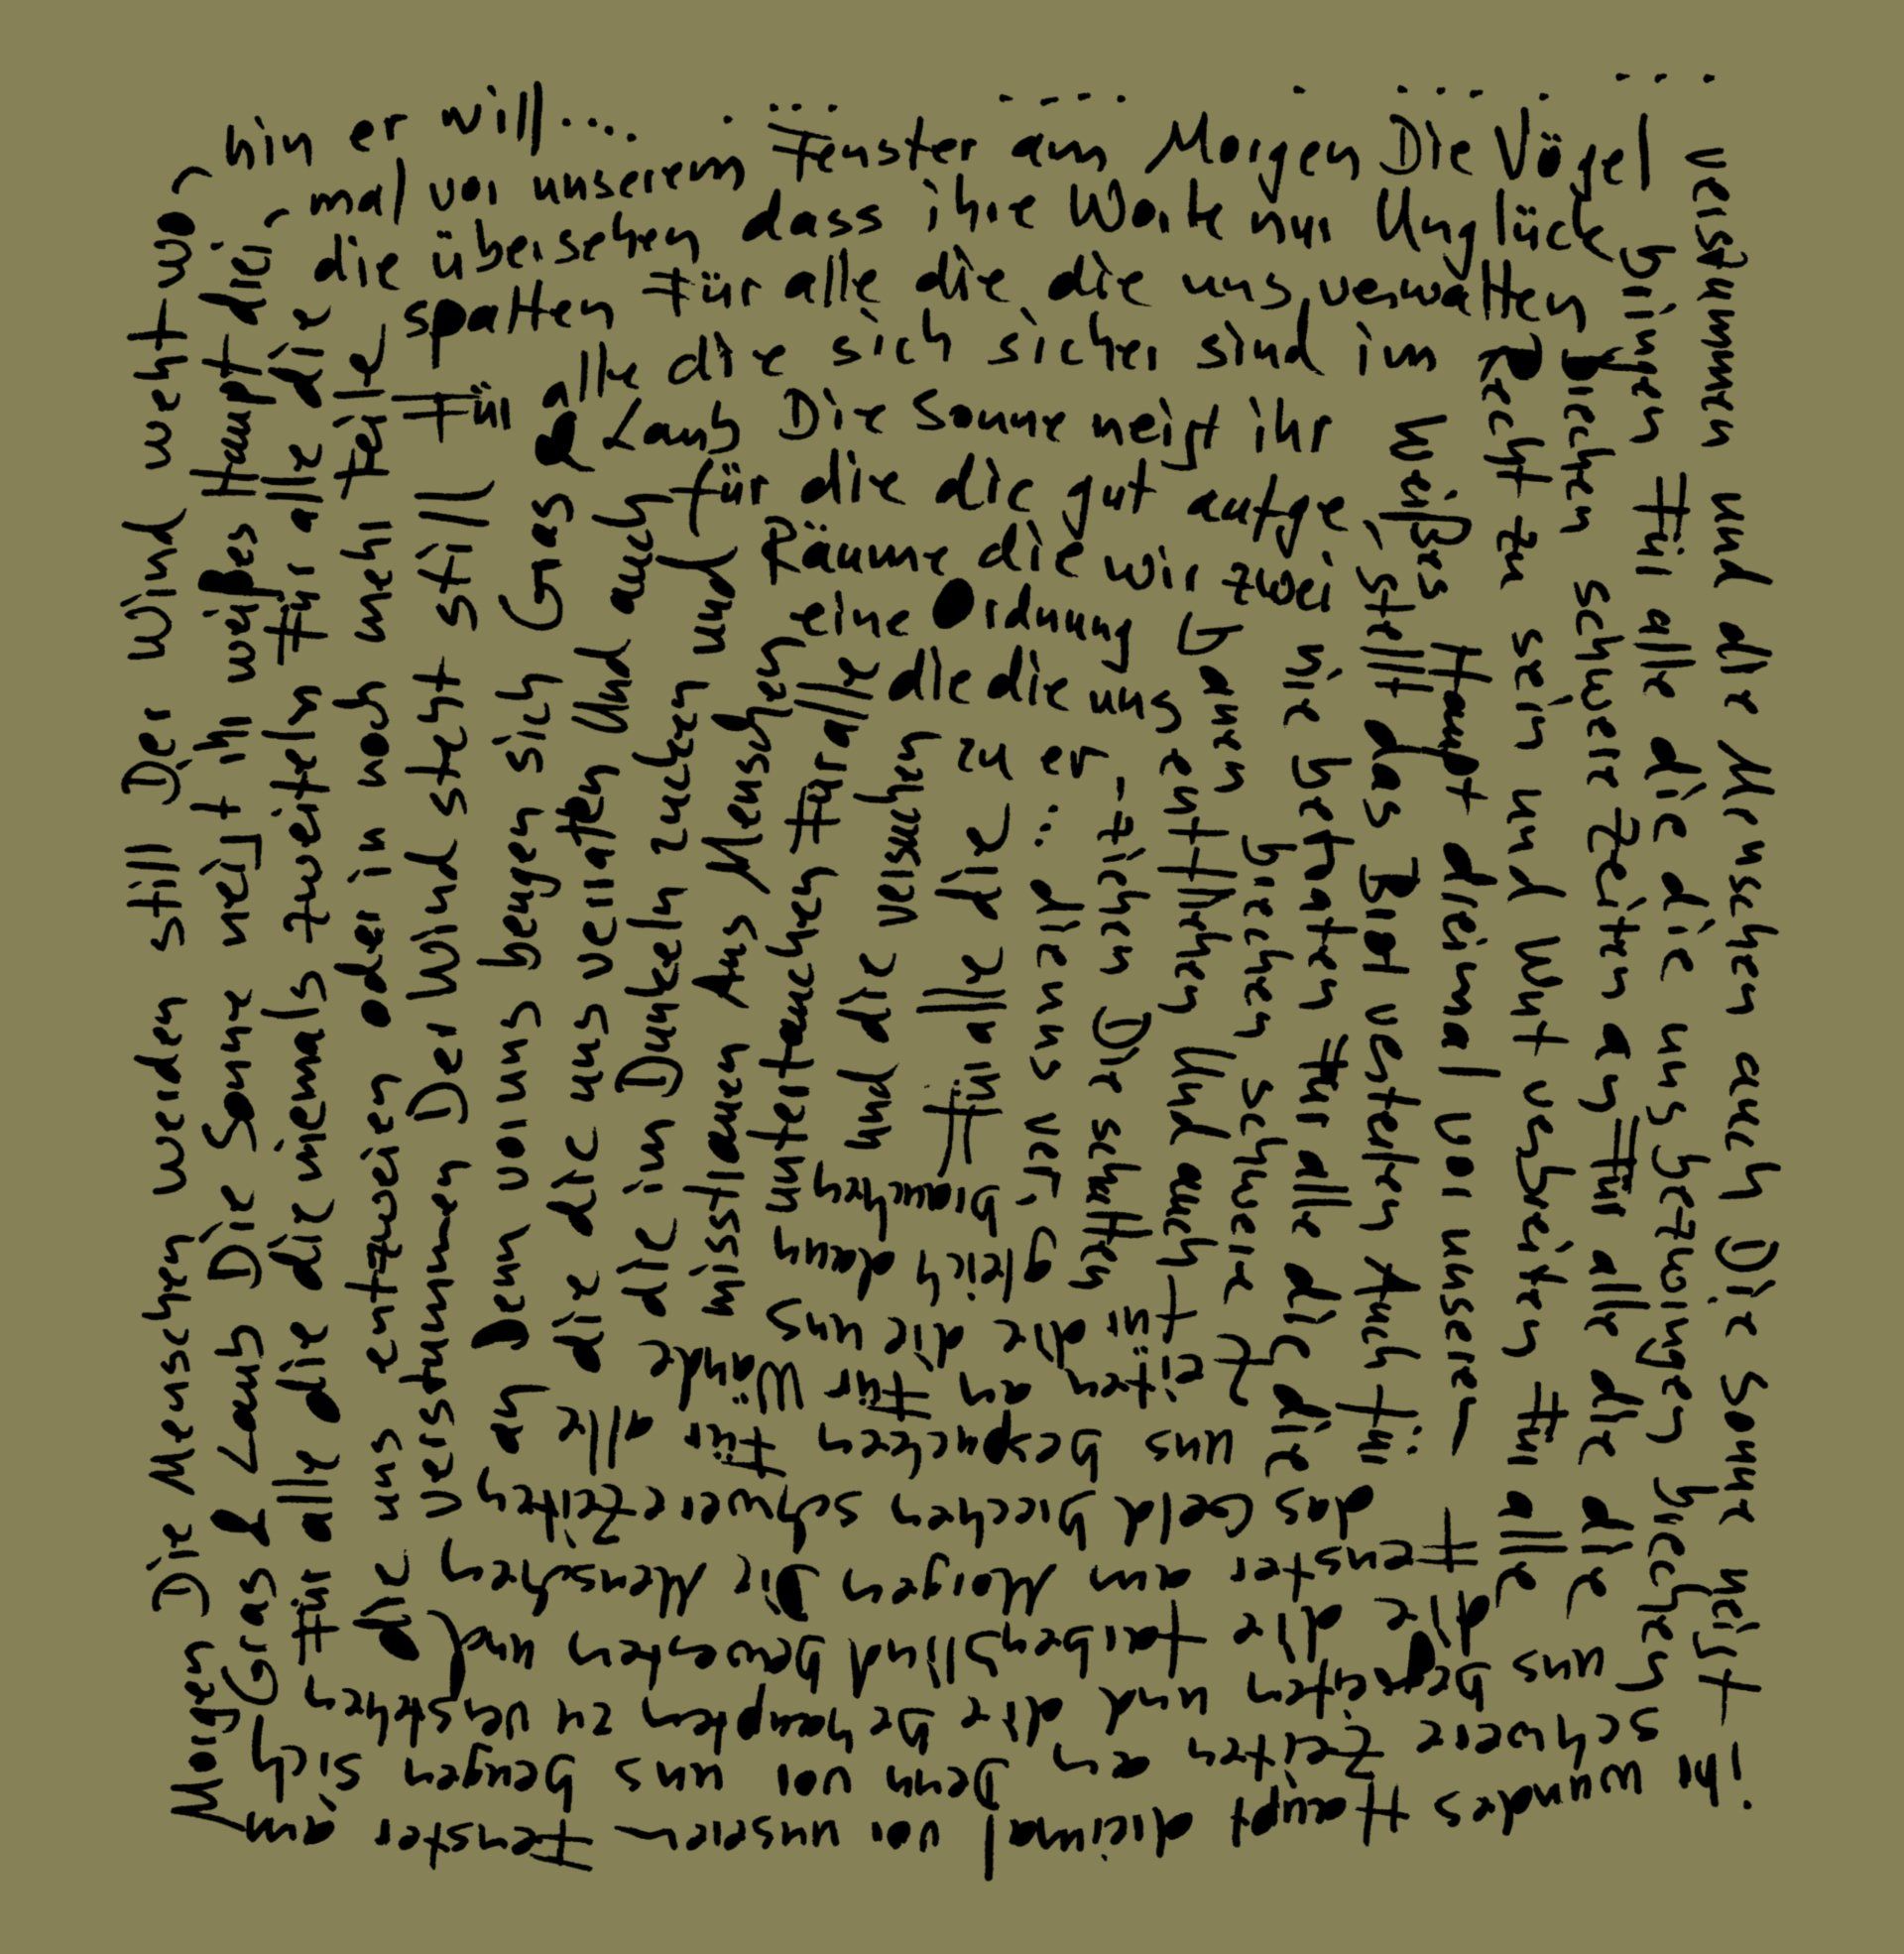 Für alle die
... die uns ver-
brauchen
und die versuchen
zu er-
-ziehen Die schulten
gleich denn
untertauchen Für alle
die die uns
entfliehen Und auch
für die die uns
misstrauen Aus Menschen
eine Ordnung
bauen brechen schwere
Zeiten an Für Wände
die im Dunkeln zucken und
Räume die wir zwei
nie betraten Für alle die die
uns bespucken Für alle
die die uns verraten Und auch
für die die gut aufge-
stellt das Brot verteilen Auch für
das Geld brechen schwere Zeiten
an Denn vor uns beugen sich Gras
& Laub Die Sonne neigt ihr
weißes Haupt dreimal vor unserem
Fenster am Morgen Die Menschen
verstummen Der Wind steht still
Für alle die sich sicher sind im
Recht zu sein und Wut verbreiten Für alle
die die farbenblind bewerten und
die uns entzweien oder in noch mehr Teile
spalten Für alle die die uns verwalten
brechen schwere Zeiten an Für alle die die
uns beraten und die behaupten zu verstehen
Für alle die die niemals zweifeln Für alle die
die übersehen dass ihre Worte nur Unglück
bringen Für alle die die uns bezwingen brechen
schwere Zeiten an Denn vor uns beugen sich
Gras & Laub Die Sonne neigt ihr weißes Haupt drei-
mal vor unserem Fenster am Morgen Die Vögel
verstummen und die Menschen auch Die Sonne neigt
ihr wundes Haupt dreimal vor unserem Fenster am
Morgen Die Menschen werden still Der Wind weht wo-
hin er will....